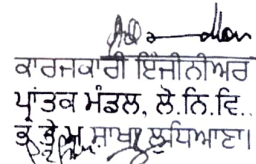 ਕਾਰਜਕਾਰੀ ਇੰਜੀਨੀਅਰ
ਪ੍ਰਾਂਤਕ ਮੰਡਲ, ਲੋ.ਨਿ.ਵਿ..
ਭ ਤੇ ਮ ਸ਼ਾਖਾ ਲੁਧਿਆਣਾ।